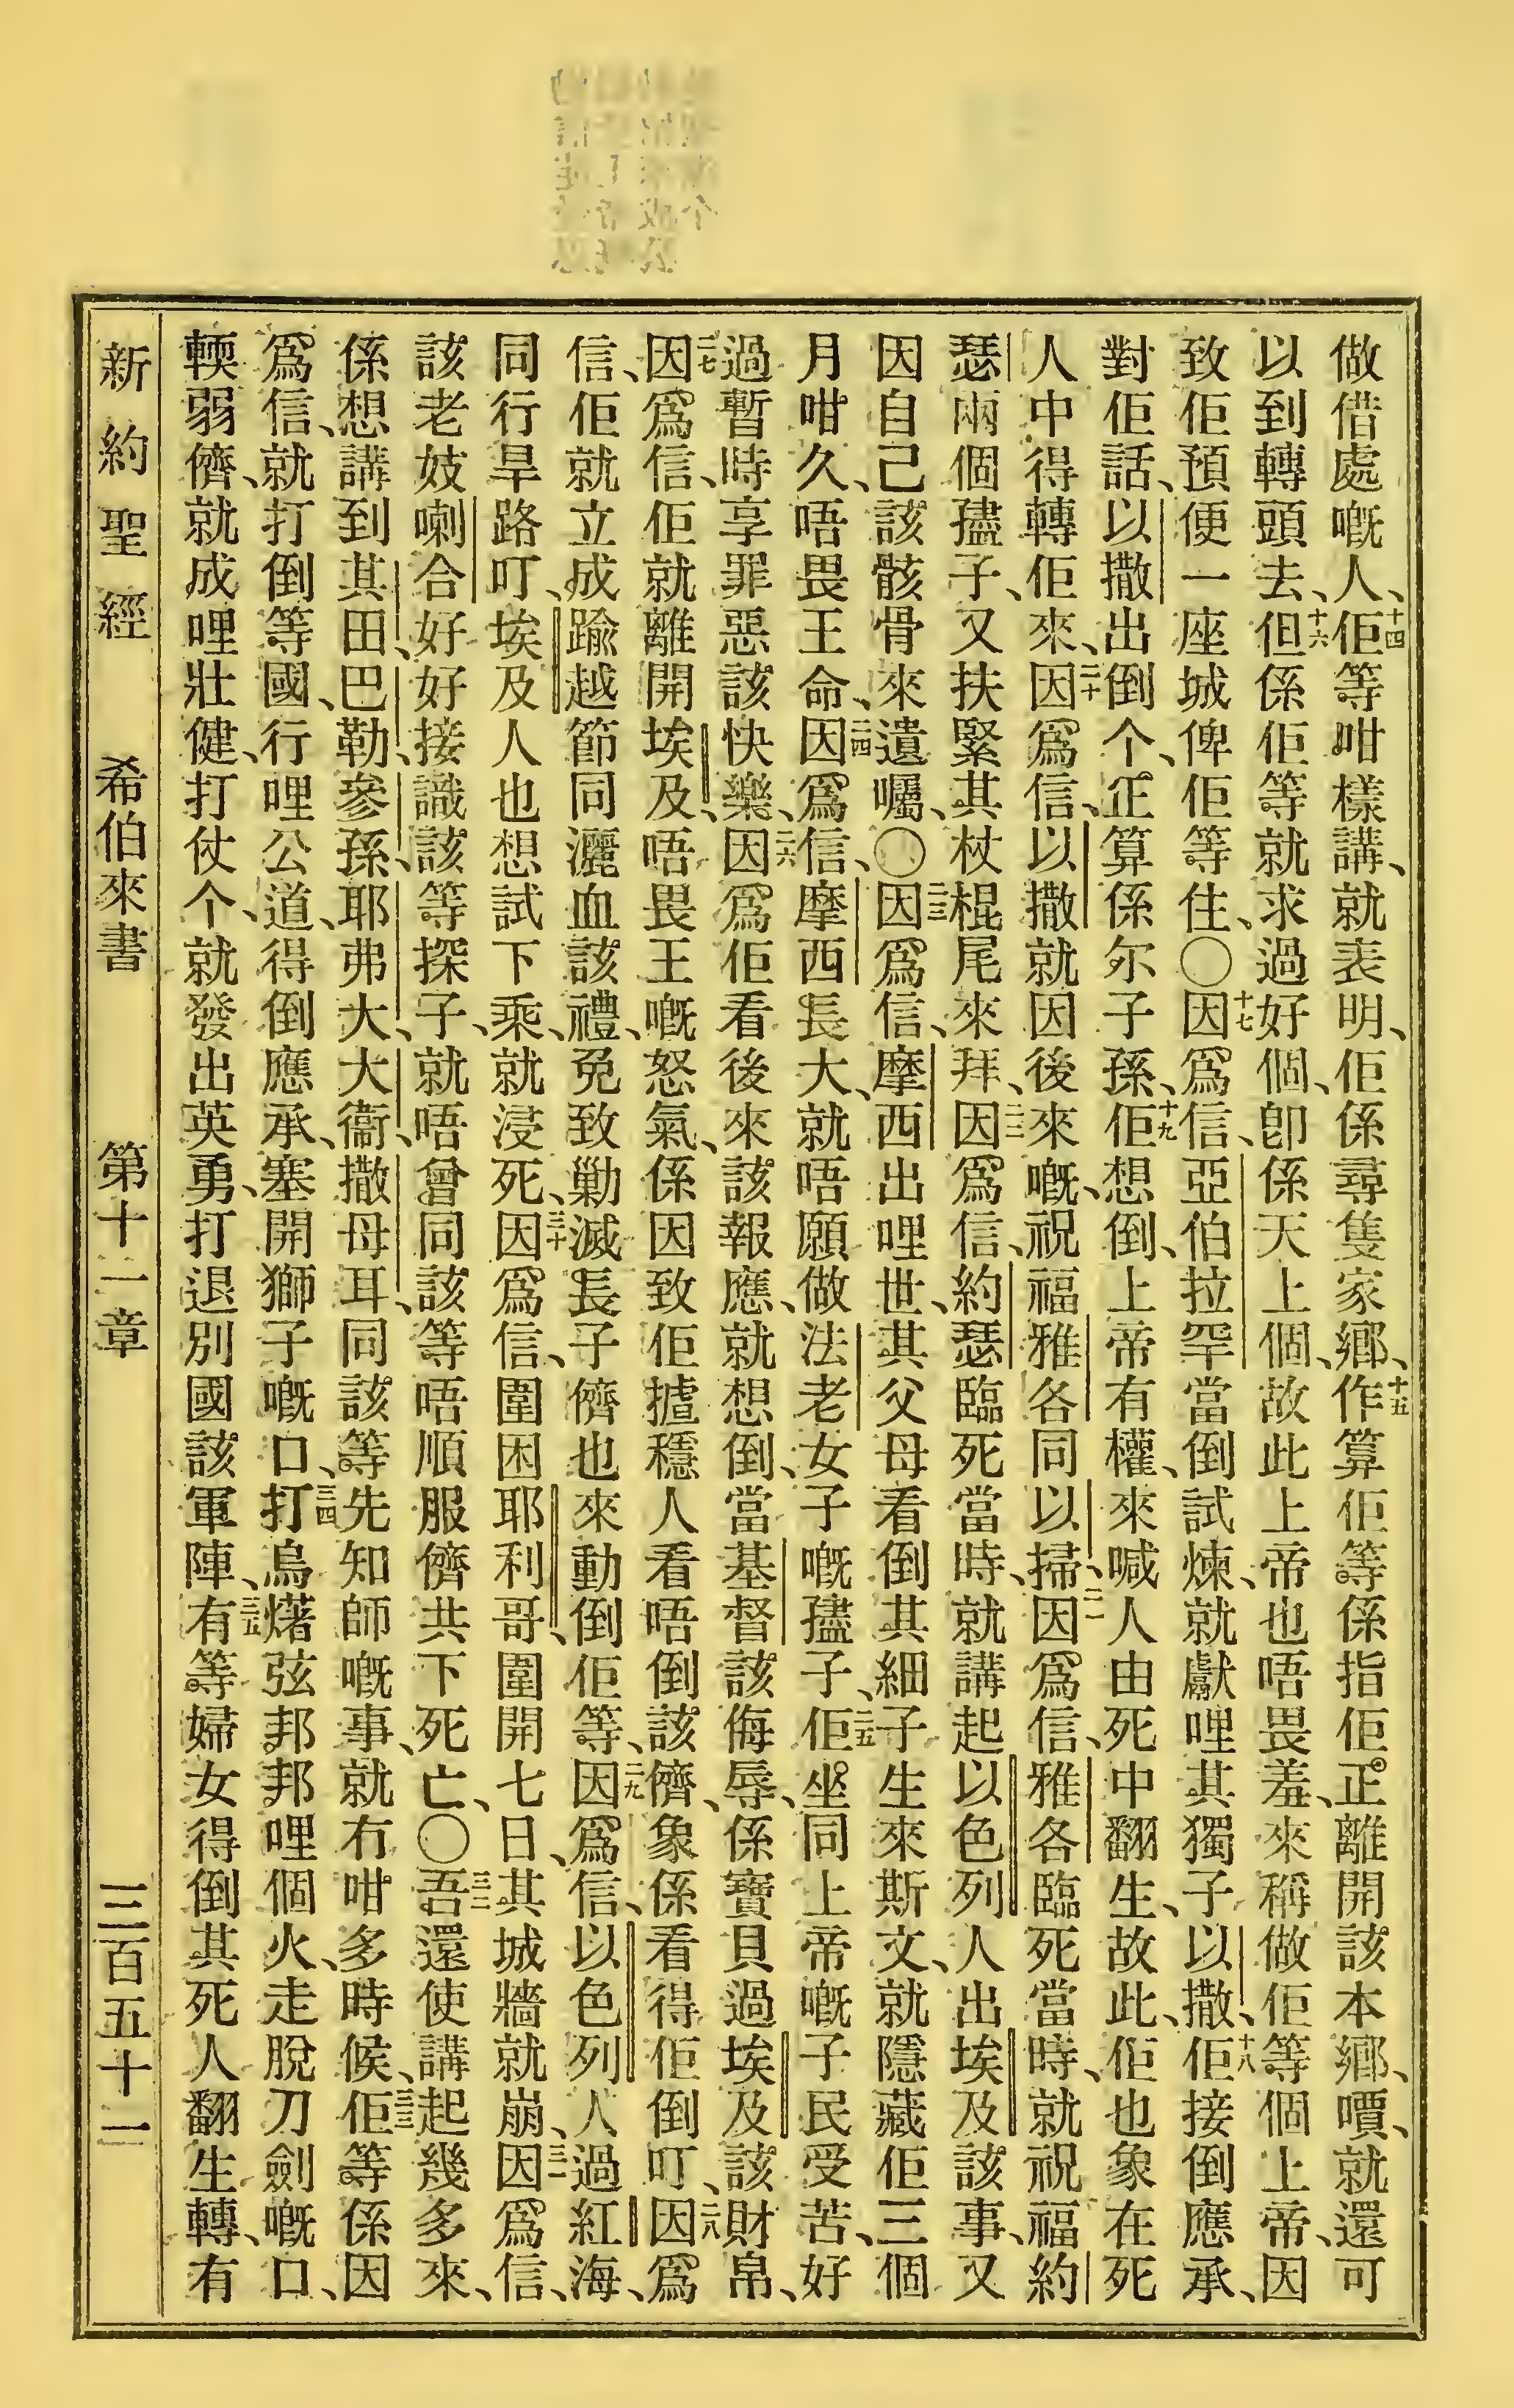 做借處嘅人、十四佢等咁樣講、就表明、佢係尋隻家鄉、十五作算佢等係指佢正離開該本鄉、嘳、就還可
以到轉頭去、十六但係佢等就求過好個、卽係天上個、故此上帝也唔畏羞、來稱做佢等個上帝、因
致佢預便一座城俾佢等住、〇十七因爲信、亞伯拉罕當倒試煉、就獻哩其獨子以撒、十八佢接倒應承、
對佢話、以撒出倒个、正算係尔子孫、十九佢想倒、上帝有權、來喊人由死中翻生、故此、佢也象在死
人中得轉佢來、二十因爲信、以撒就因後來嘅、祝福雅各同以掃、二一因爲信、雅各臨死當時、就祝福約
瑟兩個孻子、又扶緊其杖棍尾來拜、二二因爲信、約瑟臨死當時、就講起以色列人出埃及該事、又
因自己該骸骨來遺囑、〇二三因爲信、摩西出哩世、其父母看倒其細子生來斯文、就隱藏佢三個
月咁久、唔畏王命、二四因爲信、摩西長大、就唔願做法老女子嘅孻子、二五佢坐同上帝嘅子民受苦、好
過暫時享罪惡該快樂、二六因爲佢看後來該報應、就想倒、當基督該侮辱、係寶貝過埃及該財帛、
二七因爲信、佢就離開埃及、唔畏王嘅怒氣、係因致佢揸穩人看唔倒該儕、象係看得佢倒叮、二八因爲
信、佢就立成踰越節同灑血該禮、免致勦滅長子儕也來動倒佢等、二九因爲信、以色列人過紅海、
同行旱路叮、埃及人也想試下乘、就浸死、三十因爲信、圍困耶利哥、圍開七日、其城牆就崩、三一因爲信、
該老妓喇合好好接識該等探子、就唔曾同該等唔順服儕共下死亡、〇三二吾還使講起幾多來、
係想講到其田、巴勒、參孫、耶弗大、大衞、撒母耳、同該等先知師嘅事、就冇咁多時候、三三佢等係因
爲信、就打倒等國、行哩公道、得倒應承、塞開獅子嘅口、三四打烏㷮弦邦邦哩個火、走脫刀劍嘅口、
輭弱儕、就成哩壯健、打仗个、就發出英勇、打退別國該軍陣、三五有等婦女得倒其死人翻生轉、有
新約聖經 希伯來書 第十一章 三百五十一